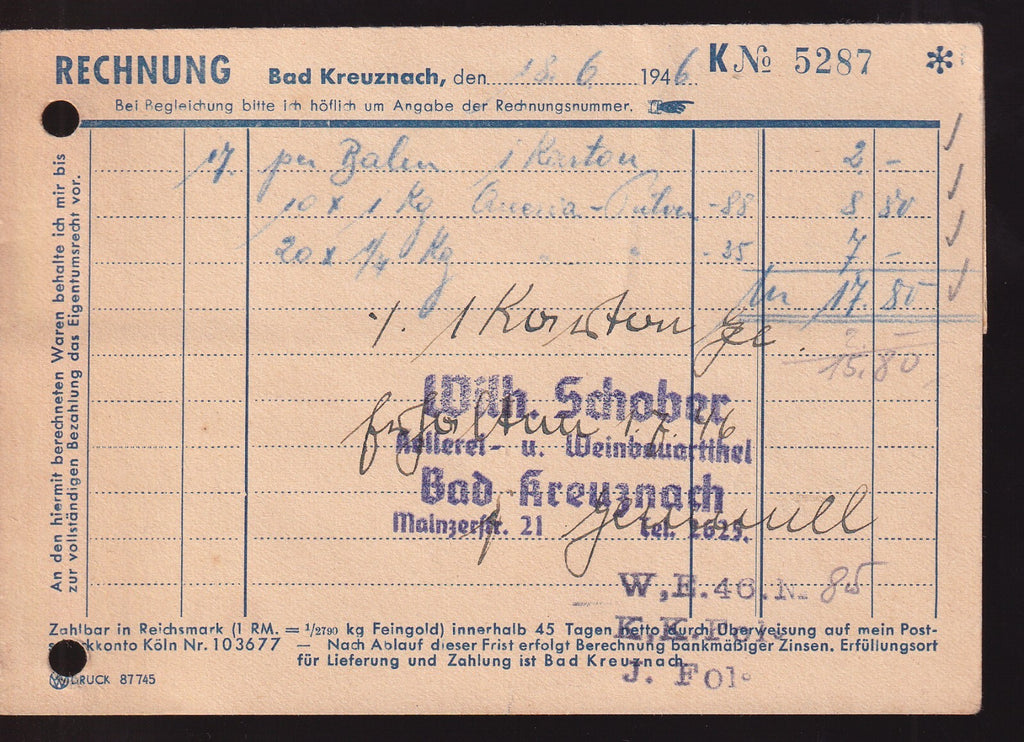 RECHNUNG Bad Kreuznach, den 18. 6. 1946 K No 5287 *
Bei Begleichung bitte ich höflich um Angabe der Rechnungsnummer.
An den hiermit berechneten Waren behalte ich mir bis
zur vollständigen Bezahlung das Eigentumsrecht vor.
17. per 1 Karton 2 -
10 x 1 Kg -88 8 80
20 x 1/4 Kg " " -35 7 -
17.80
1 Karton
15.80
Wilh. Schober
1.7.46
Kellerei- u. Weinbauartikel
Bad Kreuznach
Mainzerstr. 21 Tel. 2625.
W.E.46.N. 85
K.K.Fol.
J. Fol.
Zahlbar in Reichsmark (1 RM. = 1/2790 kg Feingold) innerhalb 45 Tagen netto durch Überweisung auf mein Post-
scheckkonto Köln Nr. 103677 — Nach Ablauf dieser Frist erfolgt Berechnung bankmäßiger Zinsen. Erfüllungsort
für Lieferung und Zahlung ist Bad Kreuznach.
DRUCK 87745